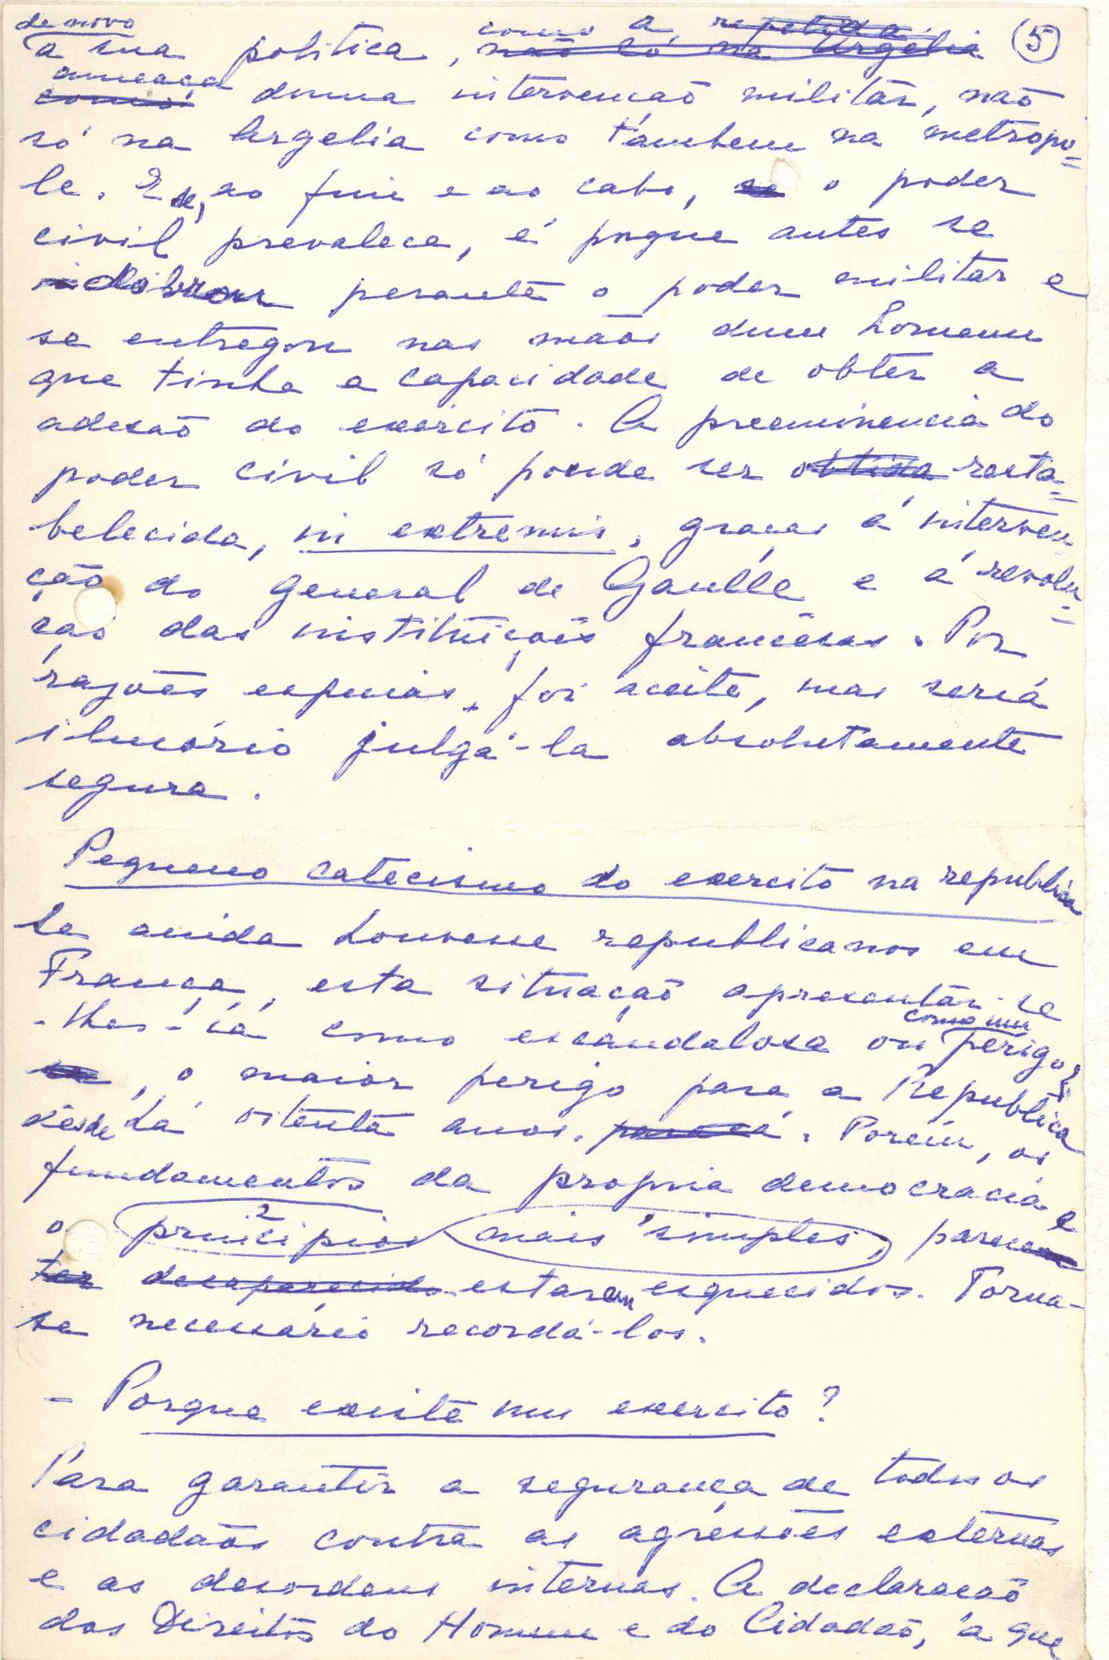 de novo como a repetida (5)
a sua politica, não só na Argelia
ameaça
como duma intervenção militar, não
só na Argelia como tambem na metropo=
le. E se, ao fim e ao cabo, se o poder
civil prevalece, é porque antes se
dobrou perante o poder militar e
se entregou nas mãos dum homem
que tinha a capacidade de obter a
adesão do exercito. A preeminencia do
poder civil só poude ser obtida resta=
belecida, in extremis, graças á interven
ção do general de Gaulle e á revolu=
ção das instituições francesas. Por
razões especiais, foi aceite, mas seria
ilusório julgá-la absolutamente
segura.
Pequeno catecismo do exercito na republica
Se ainda houvesse republicanos em
França, esta situação apresentar-se
-lhes-ia como escandalosa ou perigo;
como um
, o maior perigo para a Republica
desde há oitenta anos. para cá. Porém, os
fundamentos da propria democracia e
o principios 2 mais simples, parecem
ter desaparecido estarem esquecidos. Torna-
se necessário recordá-los.
- Porque existe um exercito?
Para garantir a segurança de todos os
cidadãos contra as agressões externas
e as desordens internas. A declaração
dos Direitos do Homem e do Cidadão, á que